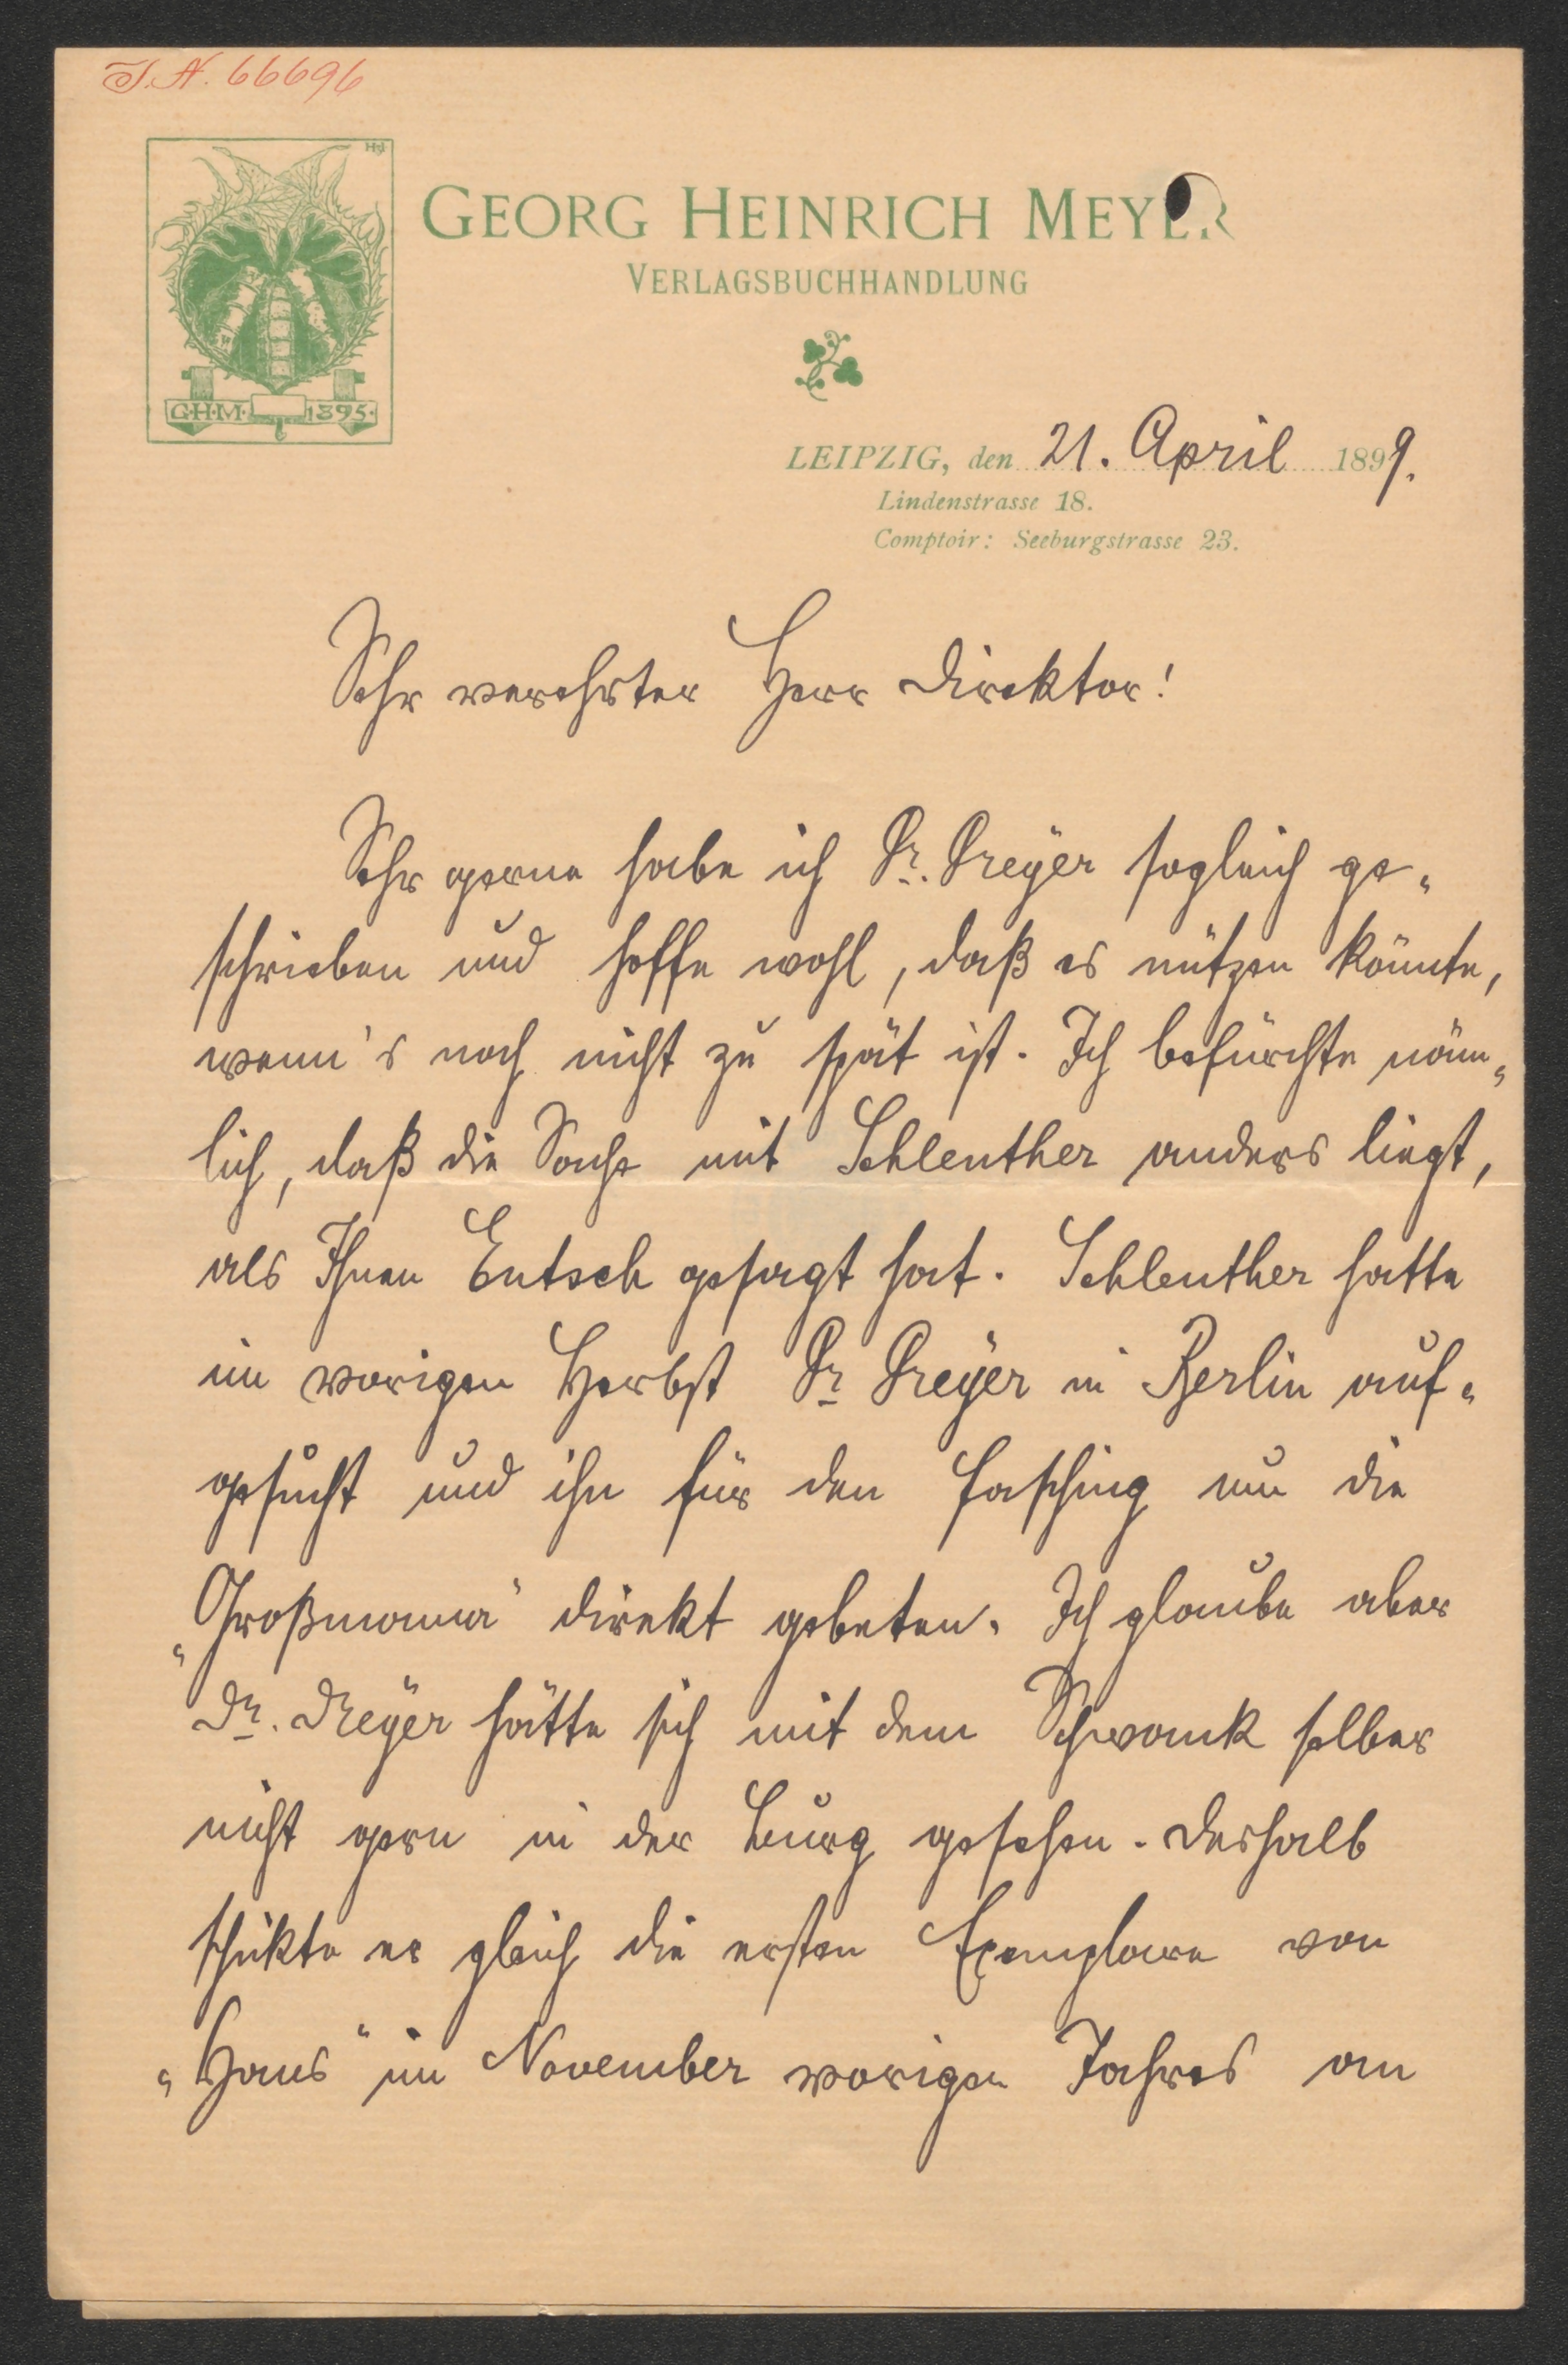 I.N. 66696
HH
GEORG HEINRICH MEYER
VERLAGSBUCHHANDLUNG
G·H·M· 1895·
LEIPZIG, den 21. April 1899.
Lindenstrasse 18.
Comptoir: Seeburgstrasse 23.
Sehr verehrter Herr Direktor!
Sehr gerne habe ich Dr. Dreyer sogleich ge-
schrieben und hoffe wohl, daß es nützen könnte,
wenn's noch nicht zu spät ist. Ich befürchte näm-
lich, daß die Sache mit Schlenther anders liegt,
als Ihnen Entsch gesagt hat. Schlenther hatte
im vorigen Herbst Dr Dreyer in Berlin auf-
gesucht und ihn für den Fasching um die
„Großmama" direkt gebeten. Ich glaube aber
Dr. Dreyer hätte sich mit dem Schwank selber
nicht gern in der Burg gesehen. Deshalb
schickte er gleich die ersten Exemplare von
„Hans" im November vorigen Jahres an